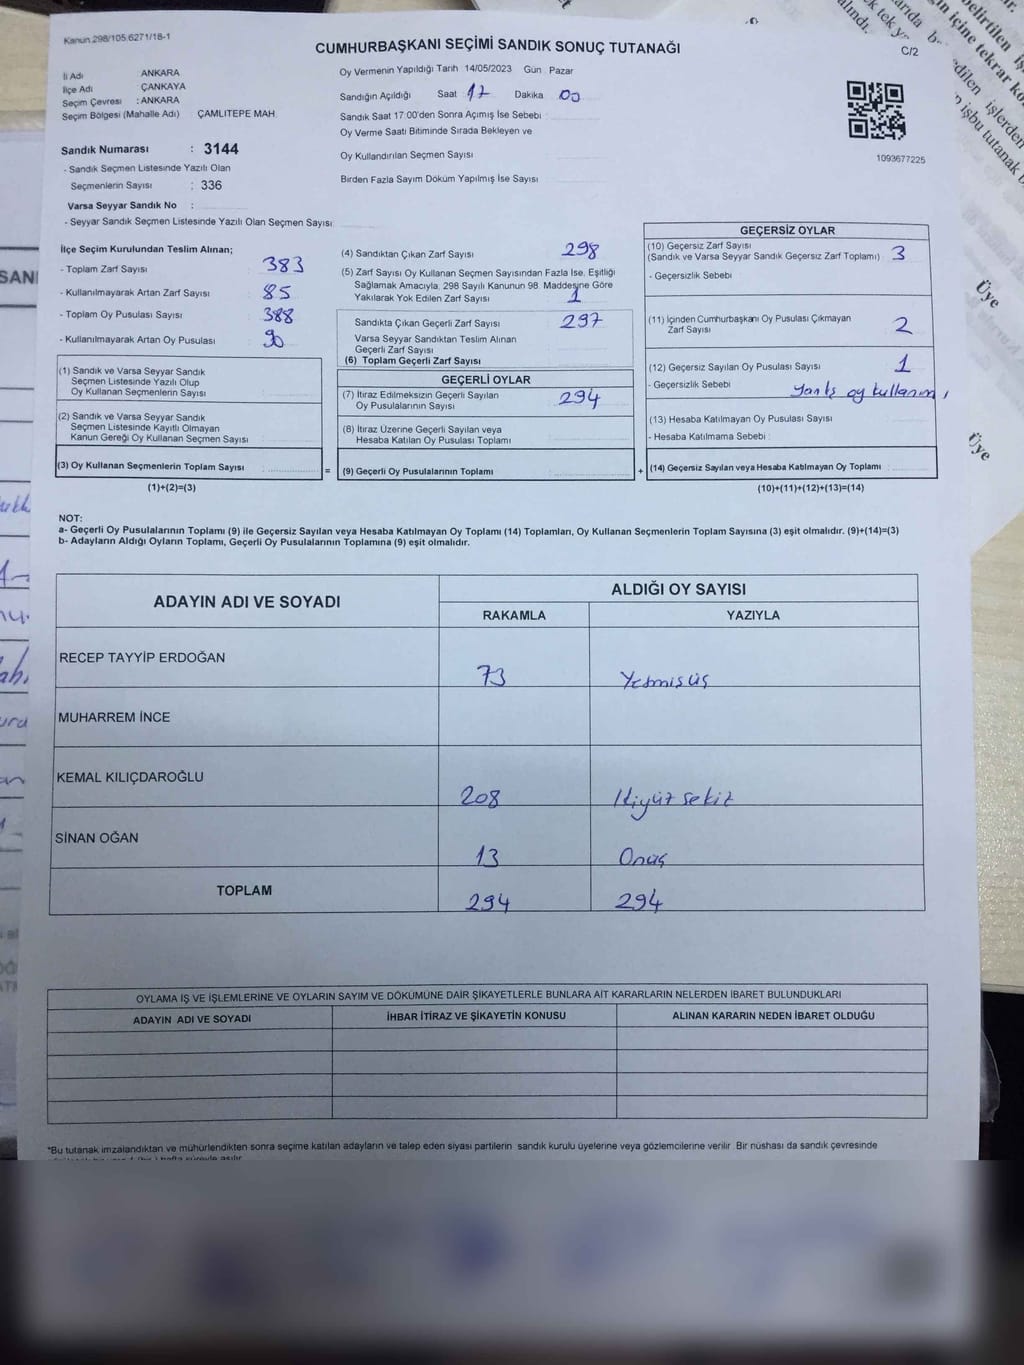 Kanun.298/105.6271/18-1
CUMHURBAŞKANI SEÇİMİ SANDIK SONUÇ TUTANAĞI
C/2
İl Adı ANKARA
İlçe Adı ÇANKAYA
Seçim Çevresi : ANKARA
Seçim Bölgesi (Mahalle Adı) ÇAMLITEPE MAH.
Sandık Numarası : 3144
- Sandık Seçmen Listesinde Yazılı Olan
Seçmenlerin Sayısı : 336
Varsa Seyyar Sandık No :
- Seyyar Sandık Seçmen Listesinde Yazılı Olan Seçmen Sayısı:
Oy Vermenin Yapıldığı Tarih 14/05/2023 Gün : Pazar
Sandığın Açıldığı Saat 17 Dakika 00
Sandık Saat 17:00'den Sonra Açımış İse Sebebi :
Oy Verme Saati Bitiminde Sırada Bekleyen ve
Oy Kullandırılan Seçmen Sayısı
Birden Fazla Sayım Döküm Yapılmış İse Sayısı
1093677225
İlçe Seçim Kurulundan Teslim Alınan;
- Toplam Zarf Sayısı 383
- Kullanılmayarak Artan Zarf Sayısı 85
- Toplam Oy Pusulası Sayısı 388
- Kullanılmayarak Artan Oy Pusulası 90
(1) Sandık ve Varsa Seyyar Sandık
Seçmen Listesinde Yazılı Olup
Oy Kullanan Seçmenlerin Sayısı
(2) Sandık ve Varsa Seyyar Sandık
Seçmen Listesinde Kayıtlı Olmayan
Kanun Gereği Oy Kullanan Seçmen Sayısı
(3) Oy Kullanan Seçmenlerin Toplam Sayısı
(1)+(2)=(3)
(4) Sandıktan Çıkan Zarf Sayısı 298
(5) Zarf Sayısı Oy Kullanan Seçmen Sayısından Fazla İse, Eşitliği
Sağlamak Amacıyla, 298 Sayılı Kanunun 98. Maddesine Göre
Yakılarak Yok Edilen Zarf Sayısı 1
Sandıkta Çıkan Geçerli Zarf Sayısı 297
Varsa Seyyar Sandıktan Teslim Alınan
Geçerli Zarf Sayısı
(6) Toplam Geçerli Zarf Sayısı
GEÇERLİ OYLAR
(7) İtiraz Edilmeksizin Geçerli Sayılan
Oy Pusulalarının Sayısı 294
(8) İtiraz Üzerine Geçerli Sayılan veya
Hesaba Katılan Oy Pusulası Toplamı
= (9) Geçerli Oy Pusulalarının Toplamı +
GEÇERSİZ OYLAR
(10) Geçersiz Zarf Sayısı
(Sandık ve Varsa Seyyar Sandık Geçersiz Zarf Toplamı) : 3
- Geçersizlik Sebebi
(11) İçinden Cumhurbaşkanı Oy Pusulası Çıkmayan
Zarf Sayısı 2
(12) Geçersiz Sayılan Oy Pusulası Sayısı 1
- Geçersizlik Sebebi Yanlış oy kullanımı
(13) Hesaba Katılmayan Oy Pusulası Sayısı
- Hesaba Katılmama Sebebi :
(14) Geçersiz Sayılan veya Hesaba Katılmayan Oy Toplamı
(10)+(11)+(12)+(13)=(14)
NOT:
a- Geçerli Oy Pusulalarının Toplamı (9) ile Geçersiz Sayılan veya Hesaba Katılmayan Oy Toplamı (14) Toplamları, Oy Kullanan Seçmenlerin Toplam Sayısına (3) eşit olmalıdır. (9)+(14)=(3)
b- Adayların Aldığı Oyların Toplamı, Geçerli Oy Pusulalarının Toplamına (9) eşit olmalıdır.
ADAYIN ADI VE SOYADI ALDIĞI OY SAYISI
RAKAMLA YAZIYLA
RECEP TAYYİP ERDOĞAN 73 Yetmişüç
MUHARREM İNCE
KEMAL KILIÇDAROĞLU 208 İkiyüz sekiz
SİNAN OĞAN 13 Onüç
TOPLAM 294 294
OYLAMA İŞ VE İŞLEMLERİNE VE OYLARIN SAYIM VE DÖKÜMÜNE DAİR ŞİKAYETLERLE BUNLARA AİT KARARLARIN NELERDEN İBARET BULUNDUKLARI
ADAYIN ADI VE SOYADI İHBAR İTİRAZ VE ŞİKAYETİN KONUSU ALINAN KARARIN NEDEN İBARET OLDUĞU
*Bu tutanak imzalandıktan ve mühürlendikten sonra seçime katılan adayların ve talep eden siyasi partilerin sandık kurulu üyelerine veya gözlemcilerine verilir. Bir nüshası da sandık çevresinde
Üye
Üye